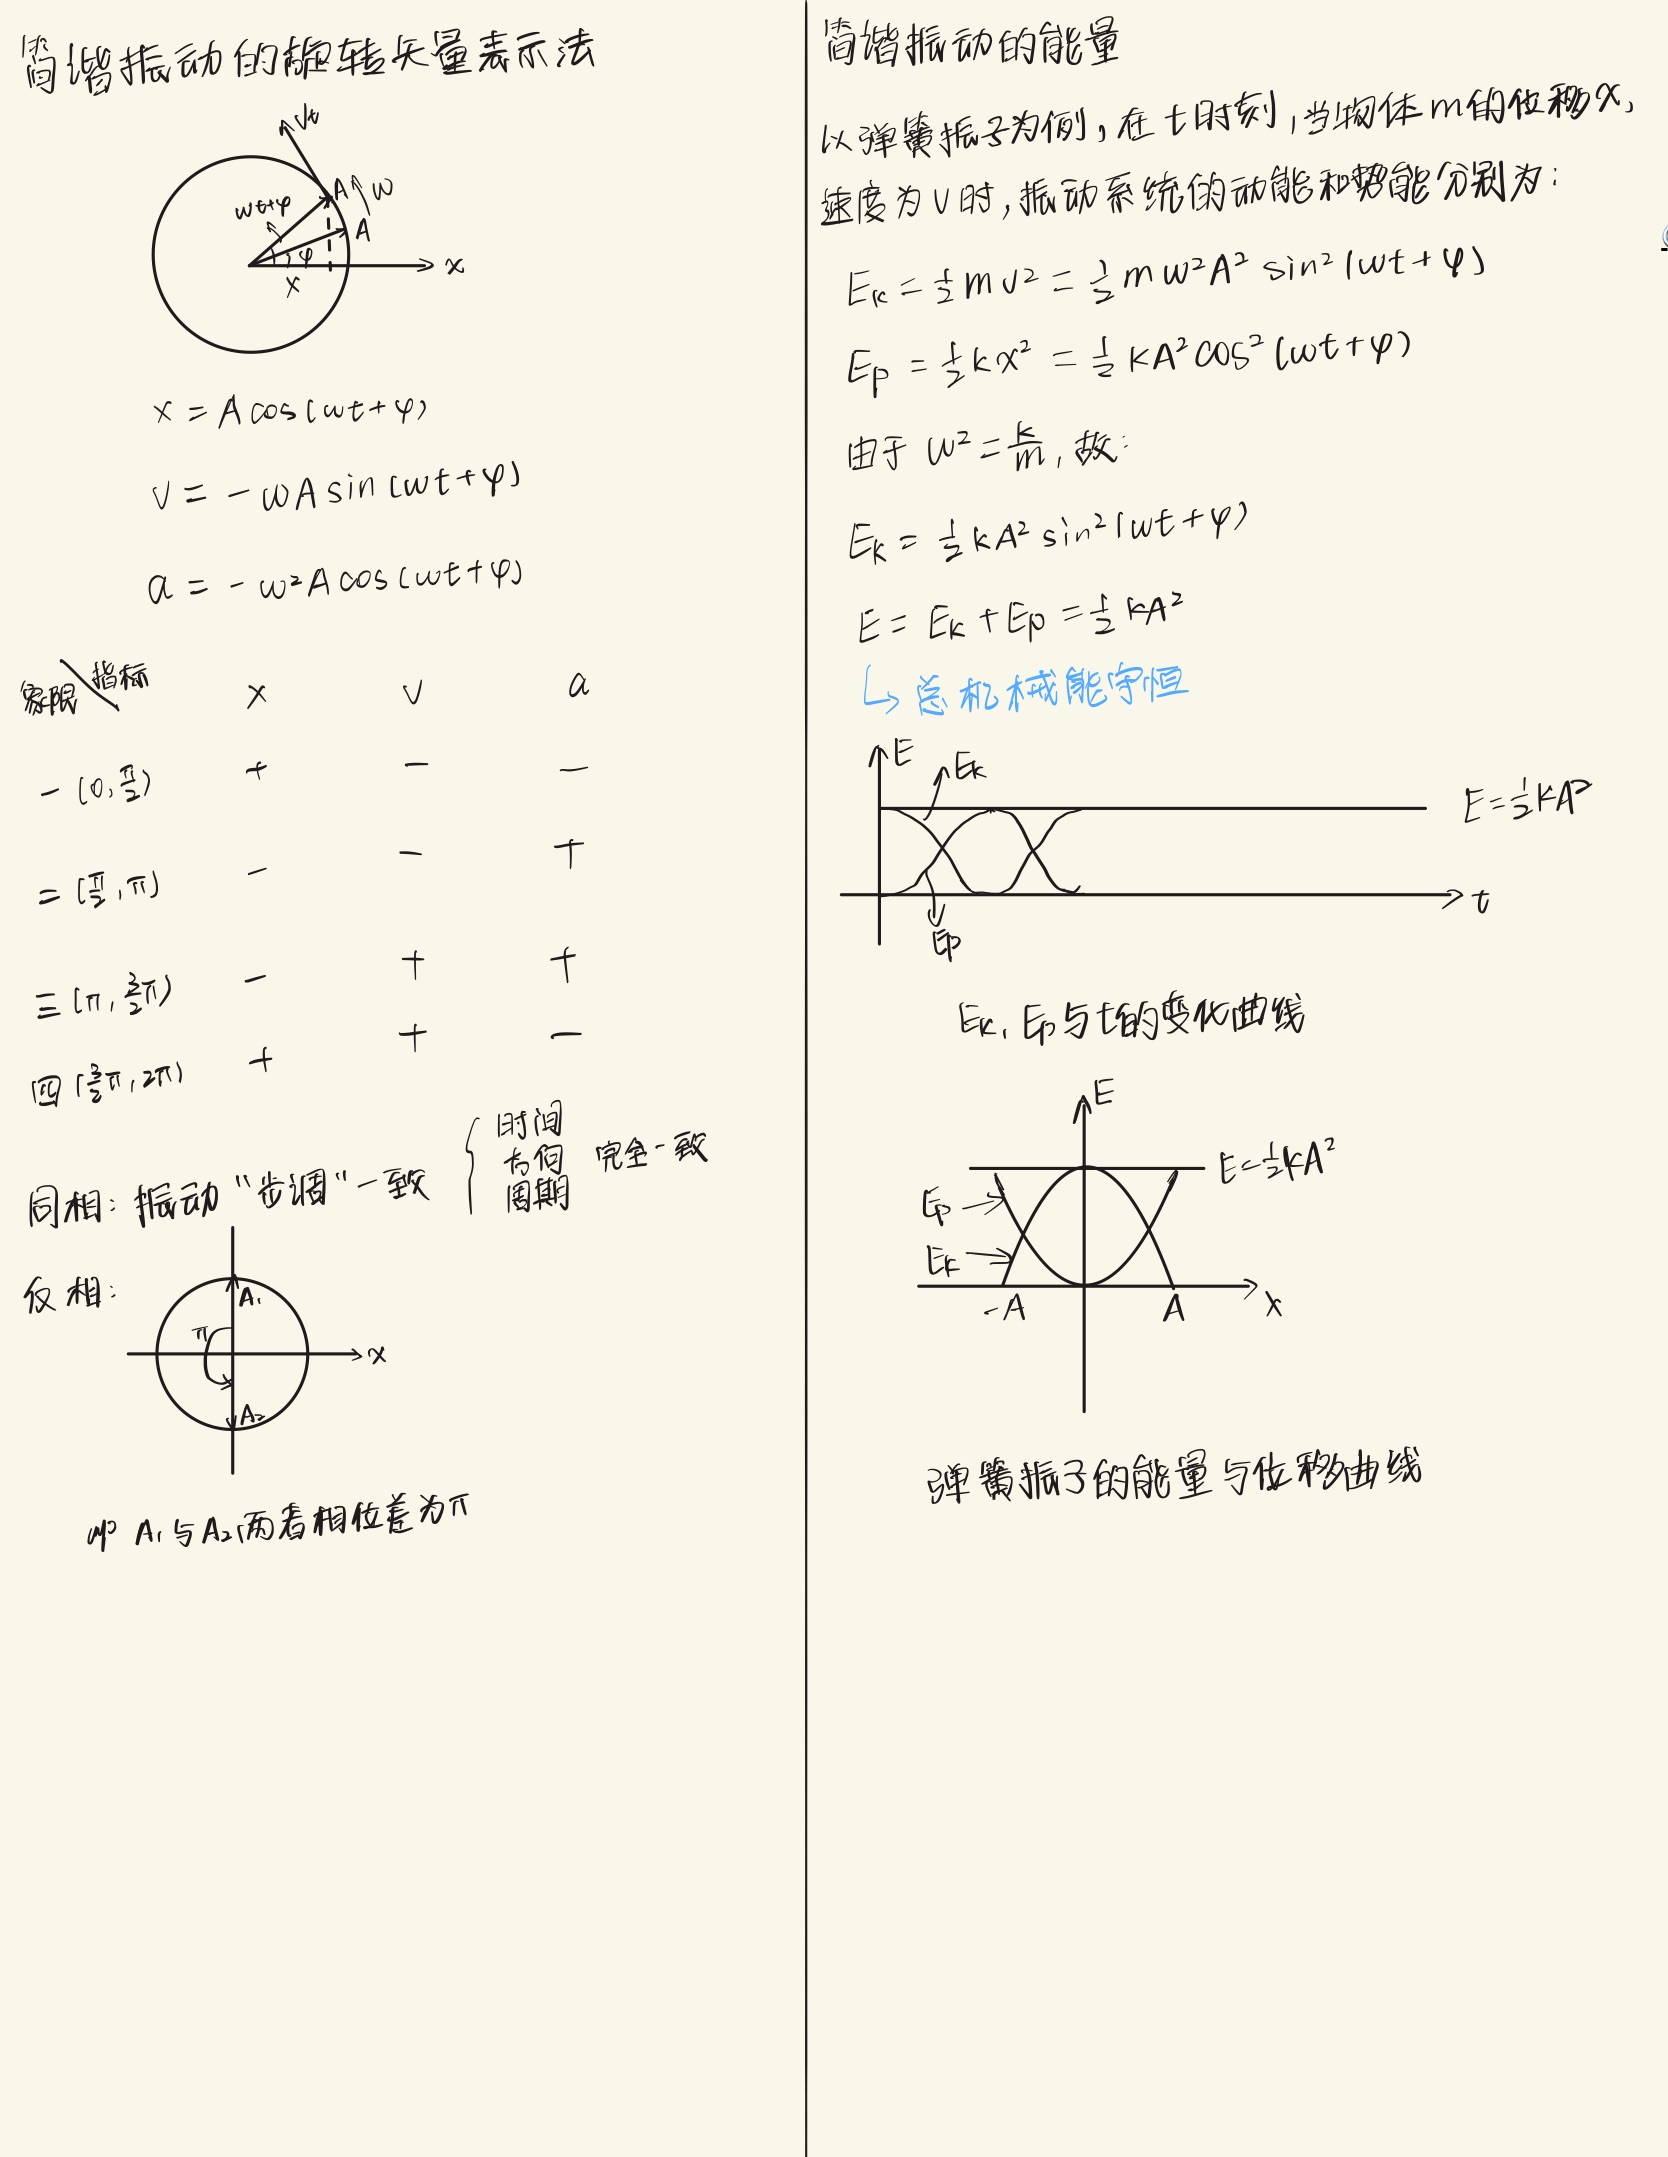 简谐振动的旋转矢量表示法
Vt
A
ω
ωt+φ
A
φ
x
x
x = A cos(ωt+φ)
v = -ωA sin(ωt+φ)
a = -ω²A cos(ωt+φ)
象限\指标 x v a
一 (0, π/2) + - -
二 (π/2, π) - - +
三 (π, 3/2π) - + +
四 (3/2π, 2π) + + -
同相: 振动 "步调" 一致 { 时间 方向 周期 完全一致
反相:
A₁
π
x
A₂
即 A₁与A₂两者相位差为π
简谐振动的能量
以弹簧振子为例, 在t时刻, 当物体m的位移x,
速度为v时, 振动系统的动能和势能分别为:
Ek = 1/2 mv² = 1/2 mω²A² sin²(ωt+φ)
Ep = 1/2 kx² = 1/2 kA² cos²(ωt+φ)
由于 ω² = k/m, 故:
Ek = 1/2 kA² sin²(ωt+φ)
E = Ek + Ep = 1/2 kA²
↳ 总机械能守恒
E
Ek
E = 1/2 kA²
t
Ep
Ek, Ep与t的变化曲线
E
E = 1/2 kA²
Ep
Ek
-A A x
弹簧振子的能量与位移曲线